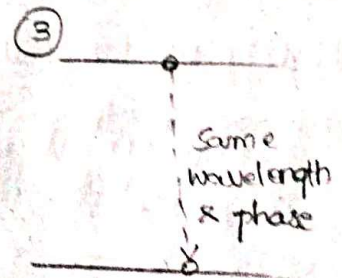 3
Same
wavelength
& phase